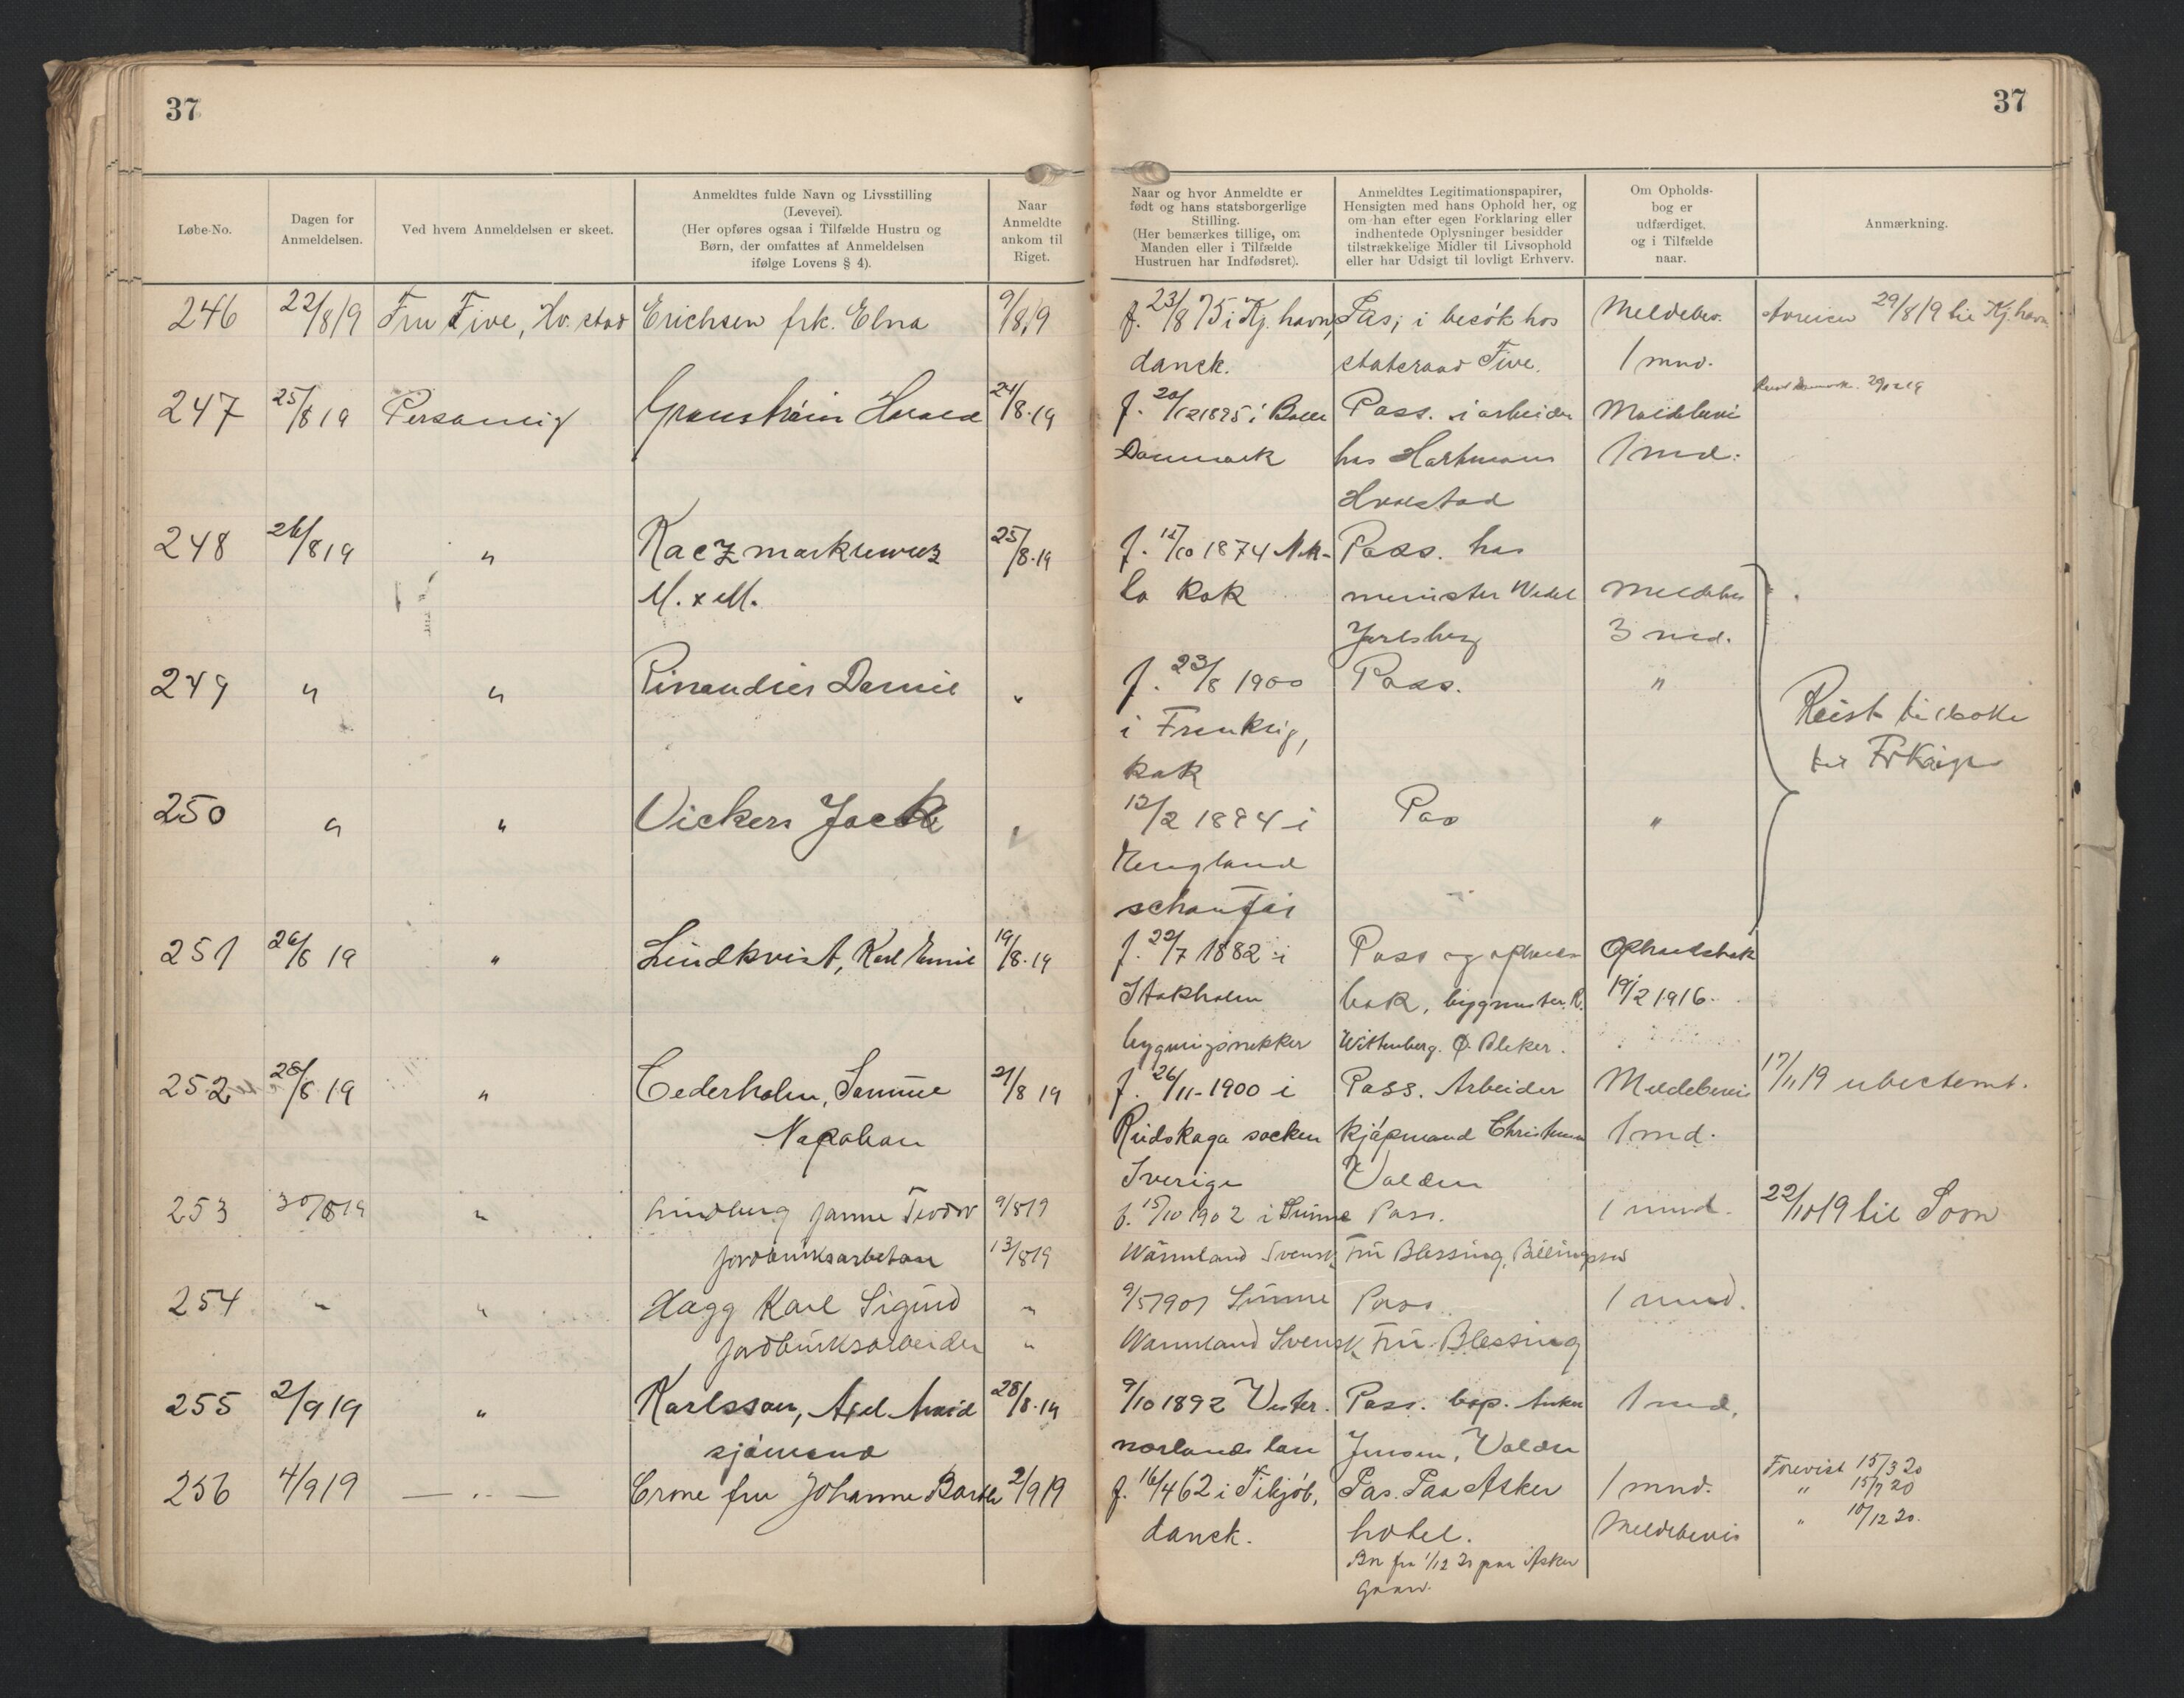 37
37
Løbe-No.
Dagen for
Anmeldelsen.
Ved hvem Anmeldelsen er skeet.
Anmeldtes fulde Navn og Livsstilling
(Levevei).
(Her opføres ogsaa i Tilfælde Hustru og
Børn, der omfattes af Anmeldelsen
ifølge Lovens § 4).
Naar
Anmeldte
ankom til
Riget.
Naar og hvor Anmeldte er
født og hans statsborgerlige
Stilling.
(Her bemærkes tillige, om
Manden eller i Tilfælde
Hustruen har Indfødsret).
Anmeldtes Legitimationspapirer,
Hensigten med hans Ophold her, og
om han efter egen Forklaring eller
indhentede Oplysninger besidder
tilstrækkelige Midler til Livsophold
eller har Udsigt til lovligt Erhverv.
Om Opholds-
bog er
udfærdiget,
og i Tilfælde
naar.
Anmærkning.
246 22/8 19 Fru Five, Hv.stad Erichsen frk. Elna 9/8 19 f. 23/8 75 i Kj.havn, Pas; i besök hos Meldebev. 29/8 19 til Kj.havn
dansk. statsraad Five. 1 mnd.
247 25/8 19 Personlig Harald 24/8.19 f. 20/12 1895 i Pass. i arbeide Meldebevi
Danmark hos Hartmann 1 md.
Hvalstad
248 26/8 19 " Kaczmarkiewicz 25/8.19 f. 15/10 1874 Pass. hos
M. x M. kok minister Wedel Meldebev
Jarlsberg 3 md.
249 " " " f. 23/8 1900 Pass. "
i Frankrig, Reist tilbake
kok til Frkrige
250 " " Vickers Jack " 12/2 1894 i Pas "
England
schauffør
251 26/8 19 " Lindkvist, Karl Emil 19/8.19 f. 22/7 1882 i Pass og opholds Opholdsbok
Stokholm bok, bygmester R. 19/2 1916.
bygningssnekker Wittenberg. Ø. Bleker.
252 28/8 19 " Cederholm, 21/8 19 f. 26/11-1900 i Pass. Arbeider Meldebevis 17/11 19 ubestemt.
Napolion socken kjøpmand 1 md.
Sverige Valden
253 30/8 19 " Lindberg Janne Teodor 9/8 19 f. 15/10 1902 i Sunne Pass. 1 mnd. 22/10 19 til Son
jordbruksarbetare 13/8 19 Wärmland Svensk Fru Blessing, Billingstad
254 " " Hagg Karl Sigurd " 9/5 1901 Sunne Pass. 1 mnd.
jordbruksarbeider " Warmland Svensk Fru Blessing
255 2/9 19 " Karlsson, Axel Arvid 28/8.19 9/10 1892 Vester. Pass. bop. Anker 1 md.
sjømand norlands lan Jensen, Valden
256 4/9 19 — " — Crone fru Johanne 2/9 19 f. 16/4 62 i Tikjøb, Pas. Paa Asker 1 mnd. Forevist 15/3 20
dansk. hotel. Meldebevis " 15/7 20
" 10/12 20.
Bor fra 1/12 20 paa Asker
Gaard.